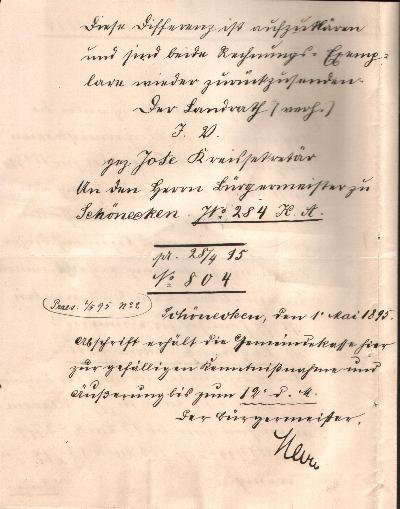 Diese Differenz ist aufzuklären
und sind beide Rechnungs-Exemp-
lare wieder zurückzusenden.
Der Landrath (verh.)
I. V.
gez. Jose Kreissekretär
An den Herrn Bürgermeister zu
Schönecken. No 284 K. A.
pr. 28/4 95
No 804
Praes. 1/5 95 No 2
Schönecken, den 1 Mai 1895.
Abschrift erhält die Gemeindekasse hier
zur gefälligen Kenntnißnahme und
Äußerung bis zum 12 d. M.
Der Bürgermeister.